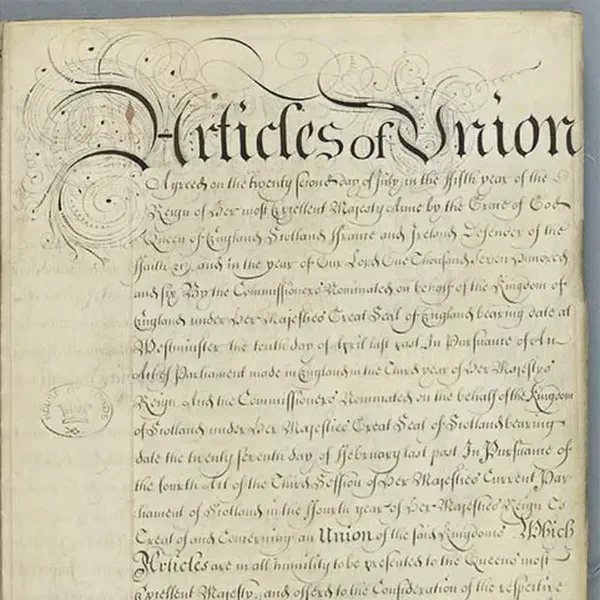 Articles of Union
Agreed on the twenty second day of July in the fifth year of the
Reign of Her most Excellent Majesty Anne by the Grace of God
Queen of England Scotland ffrance and Ireland Defender of the
ffaith &c, and in the year of Our Lord One Thousand Seven Hundred
and six By the Commissioners Nominated on behalf of the Kingdom of
England under Her Majesties Great Seal of England bearing date at
Westminster the tenth day of April last past In Pursuance of An
Act of Parliament made in England in the Third year of Her Majestys
Reign And the Commissioners Nominated on the behalf of the Kingdom
of Scotland under Her Majesties Great Seal of Scotland bearing
date the twenty seventh day of ffebruary last past In Pursuance of
the fourth Act of the Third Session of Her Majesties Current Par-
liament of Scotland in the ffourth year of Her Majesties Reign To
Treat of and Concerning an Union of the said Kingdoms Which
Articles are in all humility to be presented to the Queens most
Excellent Majesty, and offered to the Consideration of the respective